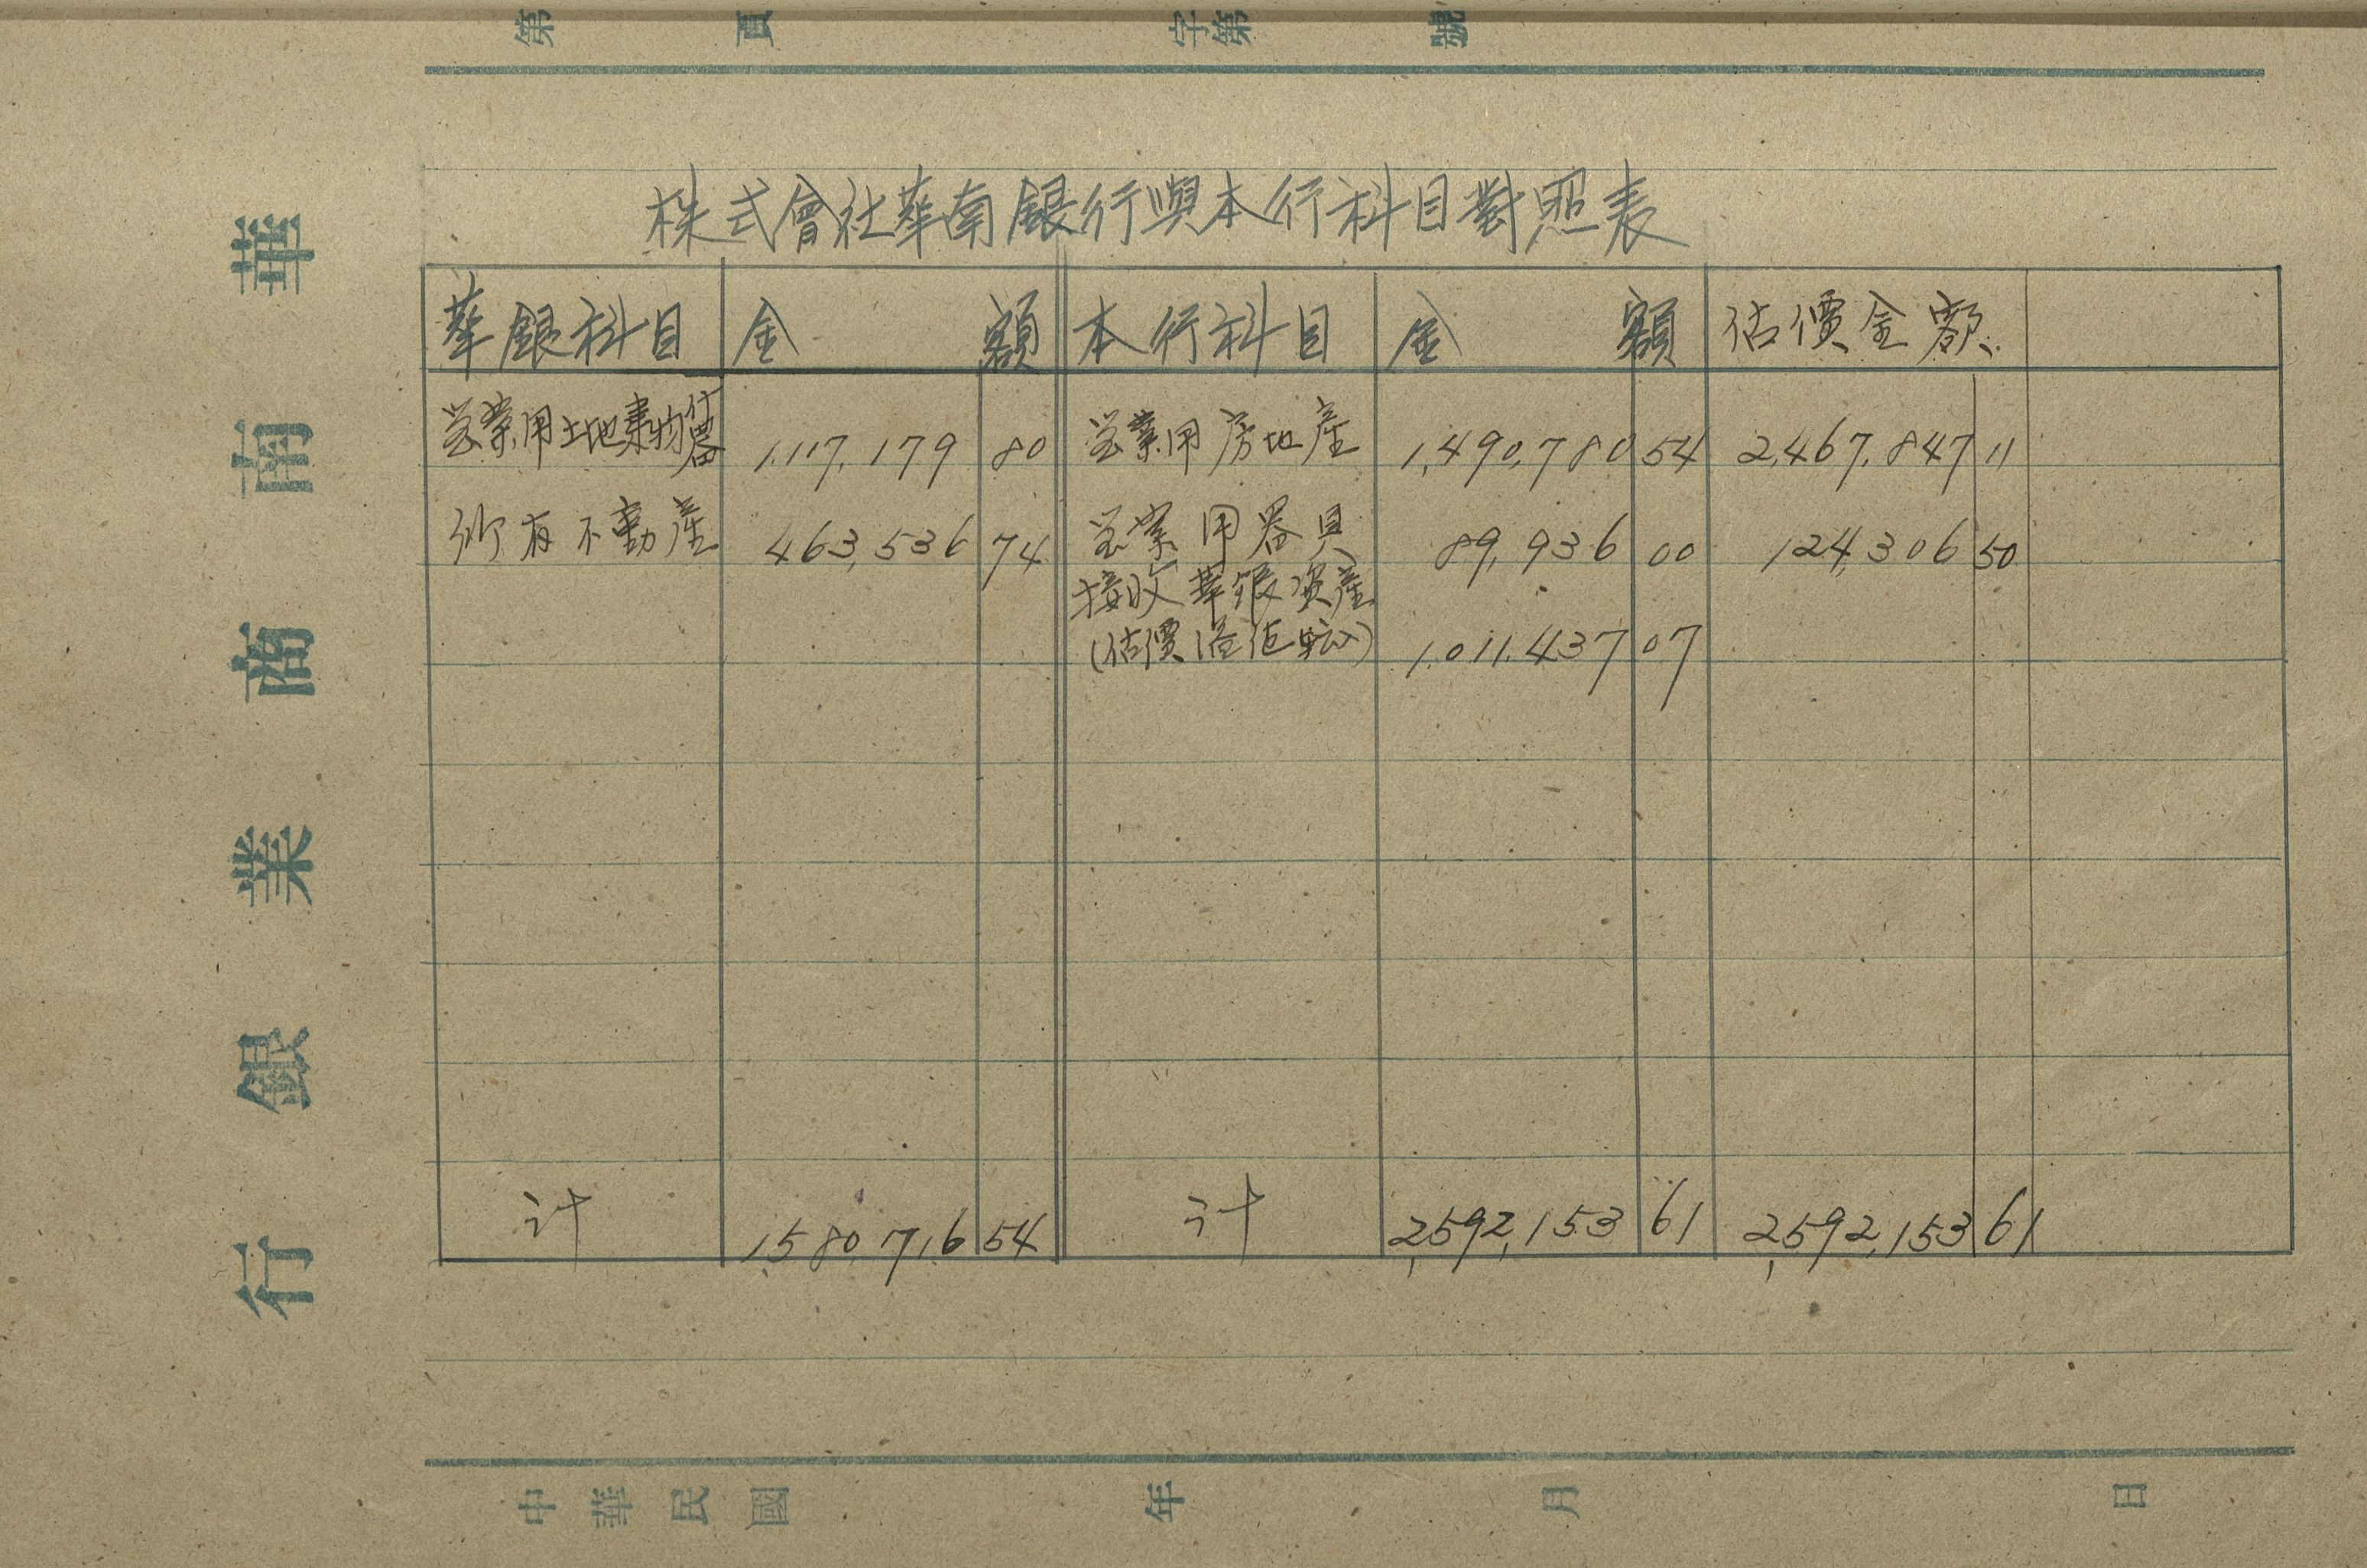 第 頁 字第 號
株式會社華南銀行與本行科目對照表
華銀科目 金 額 本行科目 金 額 估價金額
営業用土地建物什器 1,117,179 80 営業用房地産 1,490,780 54 2,467,847 11
所有不動産 463,536 74 営業用器具 89,936 00 124,306 50
接收華銀資産
(估價溢值 ) 1,011,437 07
計 1,580,716 54 計 2,592,153 61 2,592,153 61
華南商業銀行
中華民國 年 月 日